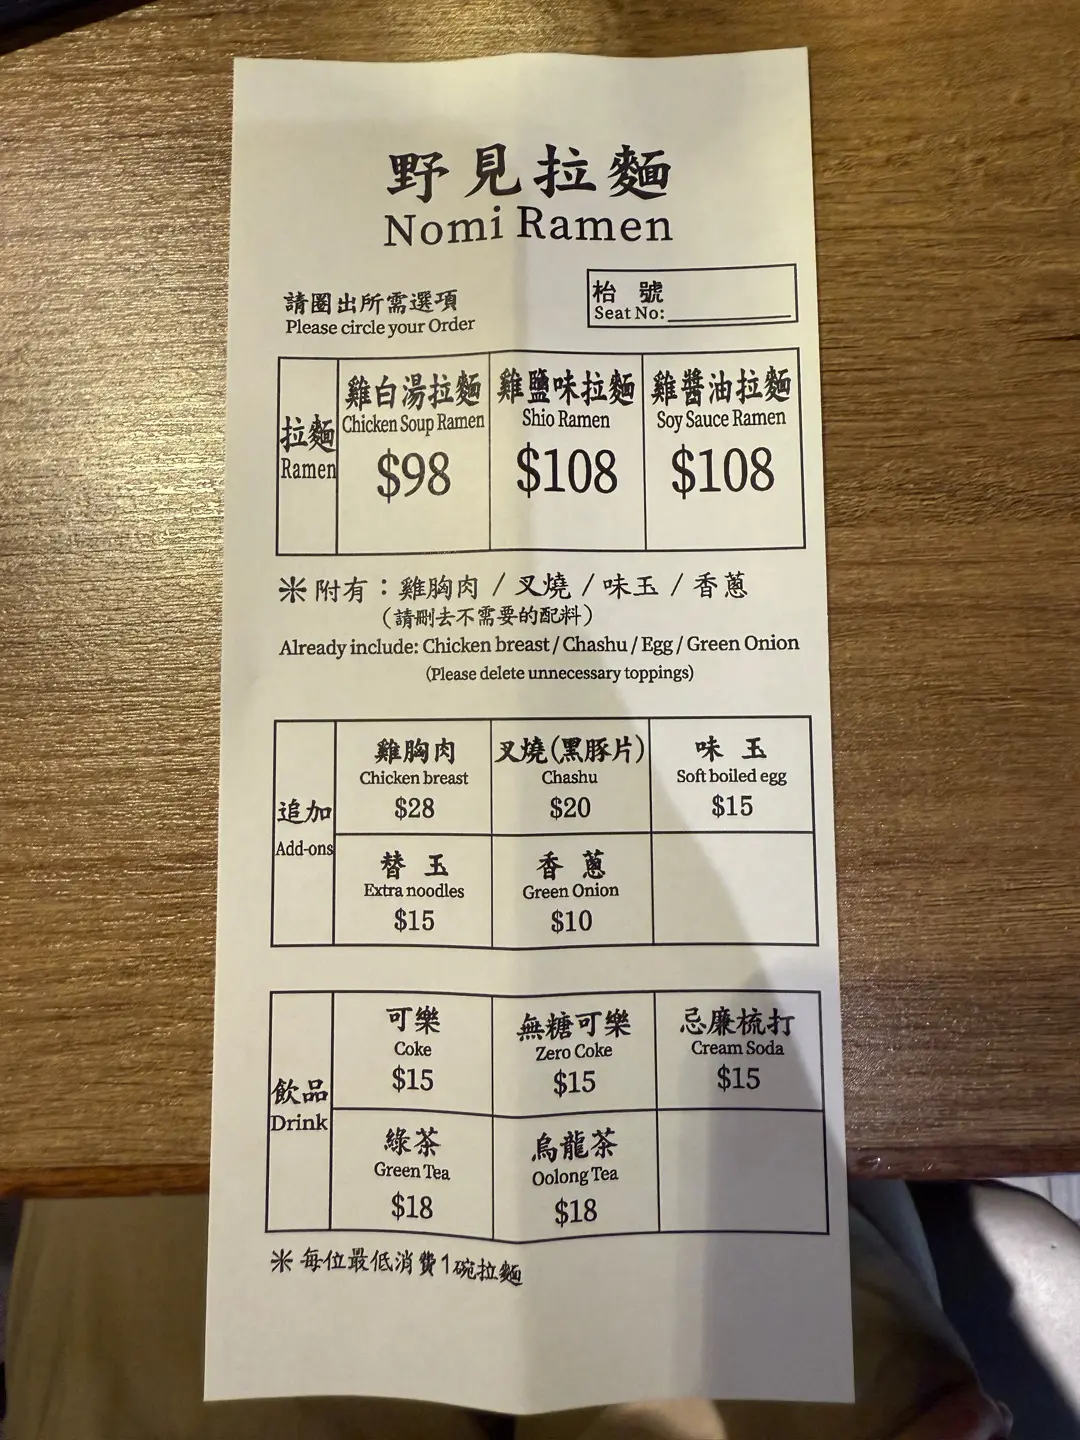 野見拉麵
Nomi Ramen
請圈出所需選項
Please circle your Order
枱 號
Seat No:
拉麵
Ramen
雞白湯拉麵
Chicken Soup Ramen
$98
雞鹽味拉麵
Shio Ramen
$108
雞醬油拉麵
Soy Sauce Ramen
$108
※ 附有：雞胸肉 / 叉燒 / 味玉 / 香蔥
（請刪去不需要的配料）
Already include: Chicken breast / Chashu / Egg / Green Onion
(Please delete unnecessary toppings)
追加
Add-ons
雞胸肉
Chicken breast
$28
叉燒(黑豚片)
Chashu
$20
味 玉
Soft boiled egg
$15
替 玉
Extra noodles
$15
香 蔥
Green Onion
$10
飲品
Drink
可樂
Coke
$15
無糖可樂
Zero Coke
$15
忌廉梳打
Cream Soda
$15
綠茶
Green Tea
$18
烏龍茶
Oolong Tea
$18
※ 每位最低消費1碗拉麵